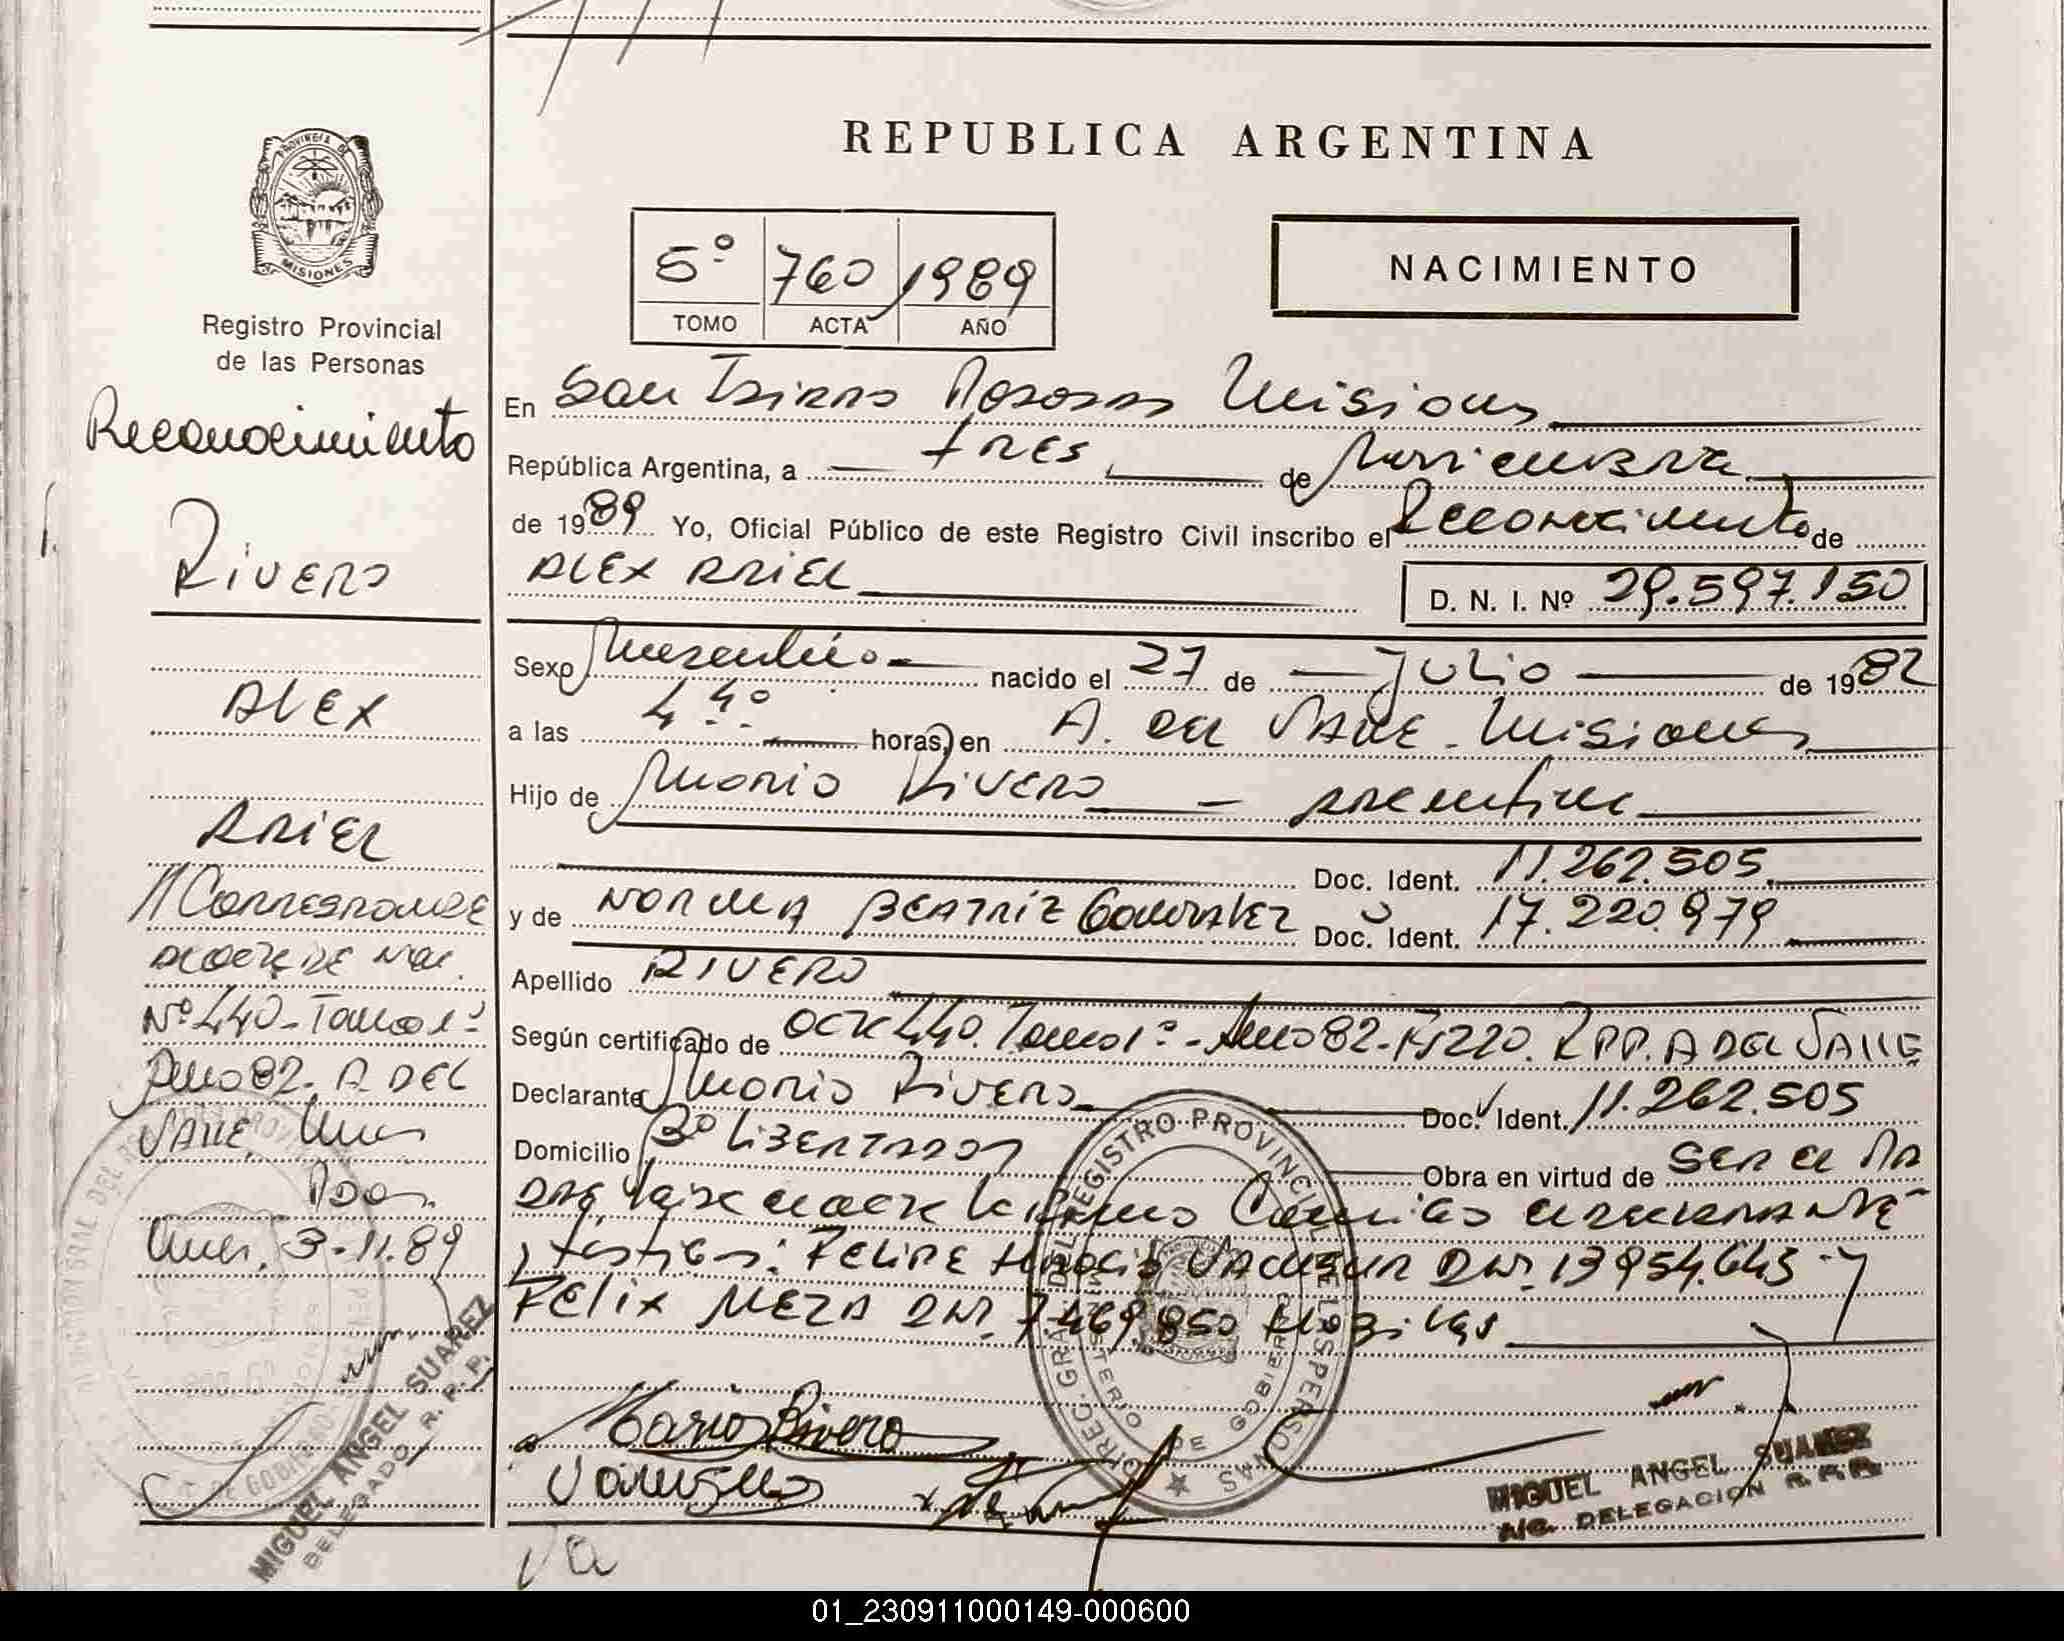 REPUBLICA ARGENTINA
PROVINCIA DE
MISIONES
Registro Provincial
de las Personas
5º 760 1989
TOMO ACTA AÑO
NACIMIENTO
Reconocimiento
Rivero
ALEX
ARIEL
Corresponde
Nº 440 - Tomo 1º
Año 82. A DEL
VALLE,
3-11.89
MIGUEL ANGEL SUAREZ
DELEGADO R. P. P.
En San Isidro Posadas Misiones
República Argentina, a tres de Noviembre
de 1989 Yo, Oficial Público de este Registro Civil inscribo el Reconocimiento de
ALEX ARIEL D. N. I. Nº 29.597.150
Sexo Masculino nacido el 27 de Julio de 1982
a las 4 4º horas, en A. del Valle - Misiones
Hijo de Mario Rivero - argentino
Doc. Ident. 11.262.505
y de NORMA BEATRIZ Gonzalez Doc. Ident. 17.220.979
Apellido RIVERO
Según certificado de acta 440. Tomo 1º - Año 82 - Fº 220. RPP. A DEL VALLE
Declarante Mario Rivero Doc. Ident. 11.262.505
Domicilio Bº Libertador Obra en virtud de ser el pa
testigos: FELIPE DNI. 13954.643 y
FELIX MEZA DNI. 7469.850
Mario Rivero
DIREC. GRAL. DEL REGISTRO PROVINCIAL DE LAS PERSONAS
MINISTERIO DE GOBIERNO
MIGUEL ANGEL SUAREZ
A/C. DELEGACION R.P.P.
01_230911000149-000600